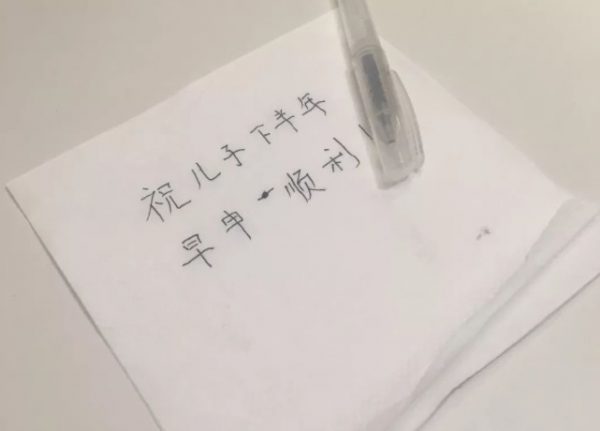 祝儿子下半年
早申一顺利